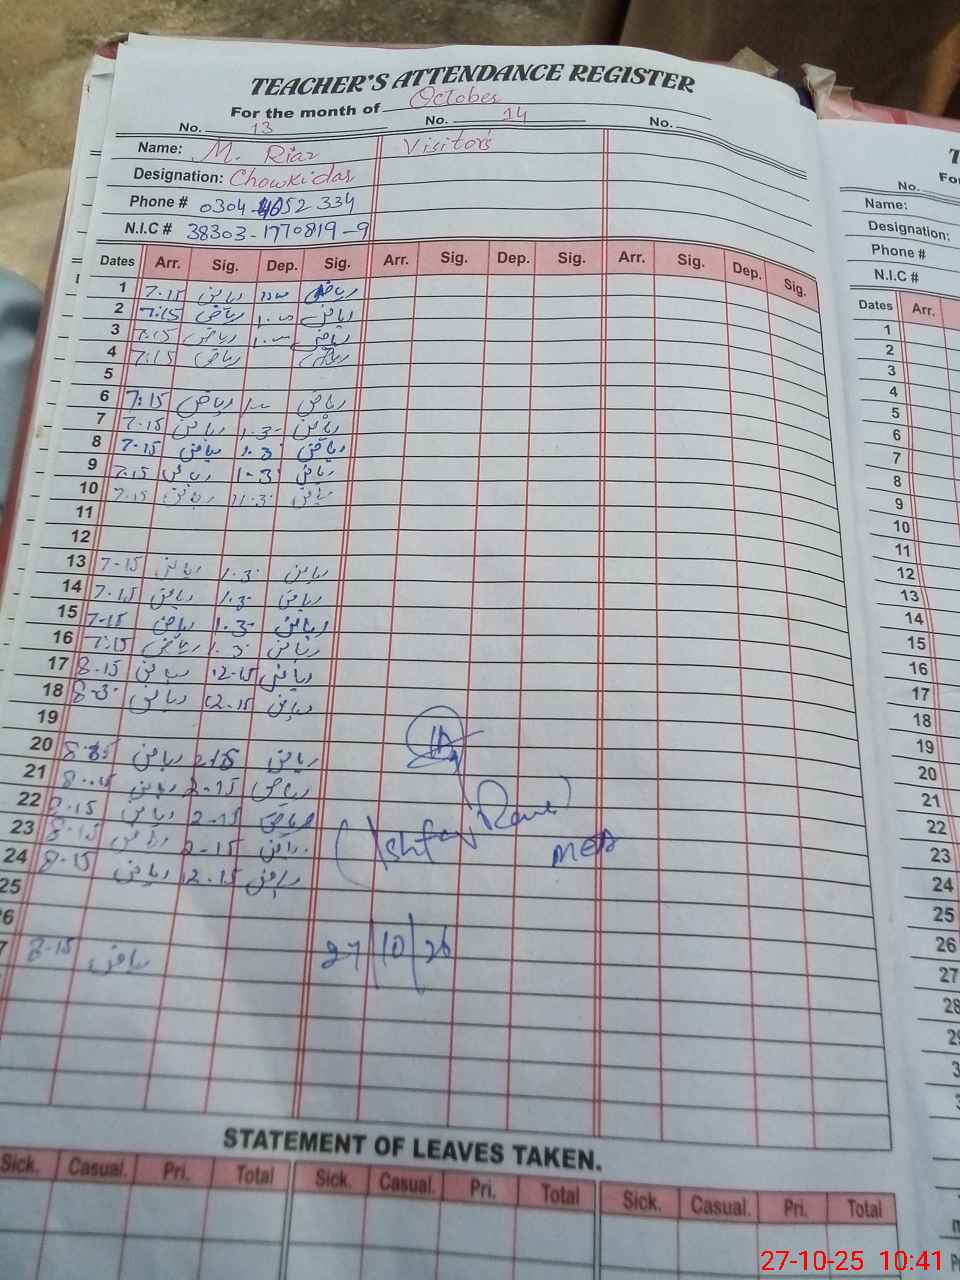 TEACHER'S ATTENDANCE REGISTER
For the month of October
No. 13 No. 14 No.
Name: M. Riaz Visitors
Designation: Chowkidar
Phone # 0304-4652334
N.I.C # 38303-1770819-9
Dates Arr. Sig. Dep. Sig. Arr. Sig. Dep. Sig. Arr. Sig. Dep. Sig.
1 7.15 ریاض ریاض
2 7:15 ریاض 1.00 ریاض
3 7:15 ریاض 1.00 ریاض
4 7:15 ریاض ریاض
5
6 7:15 ریاض ریاض
7 7.15 ریاض 1.3- ریاض
8 7-15 ریاض 1.3 ریاض
9 7.15 ریاض 1-3 ریاض
10 7.15 ریاض 11.3 ریاض
11
12
13 7-15 ریاض 1.3- ریاض
14 7.15 ریاض 1.3- ریاض
15 7-15 ریاض 1.3- ریاض
16 7:15 ریاض 1.3- ریاض
17 8-15 ریاض 12-15 ریاض
18 8-3- ریاض 12-15 ریاض
19
20 ریاض ریاض
21 8-15 ریاض 2-15 ریاض
22 8-15 ریاض 2-15 ریاض
23 8-15 ریاض 2-15 ریاض
24 8-15 ریاض 12.15 ریاض
25
6
7 8-15 ریاض
MEA
27/10/26
STATEMENT OF LEAVES TAKEN.
Sick. Casual. Pri. Total Sick. Casual. Pri. Total Sick. Casual. Pri. Total
No.
Name:
Designation:
Phone #
N.I.C #
Dates Arr.
1
2
3
4
5
6
7
8
9
10
11
12
13
14
15
16
17
18
19
20
21
22
23
24
25
26
27
28
27-10-25 10:41